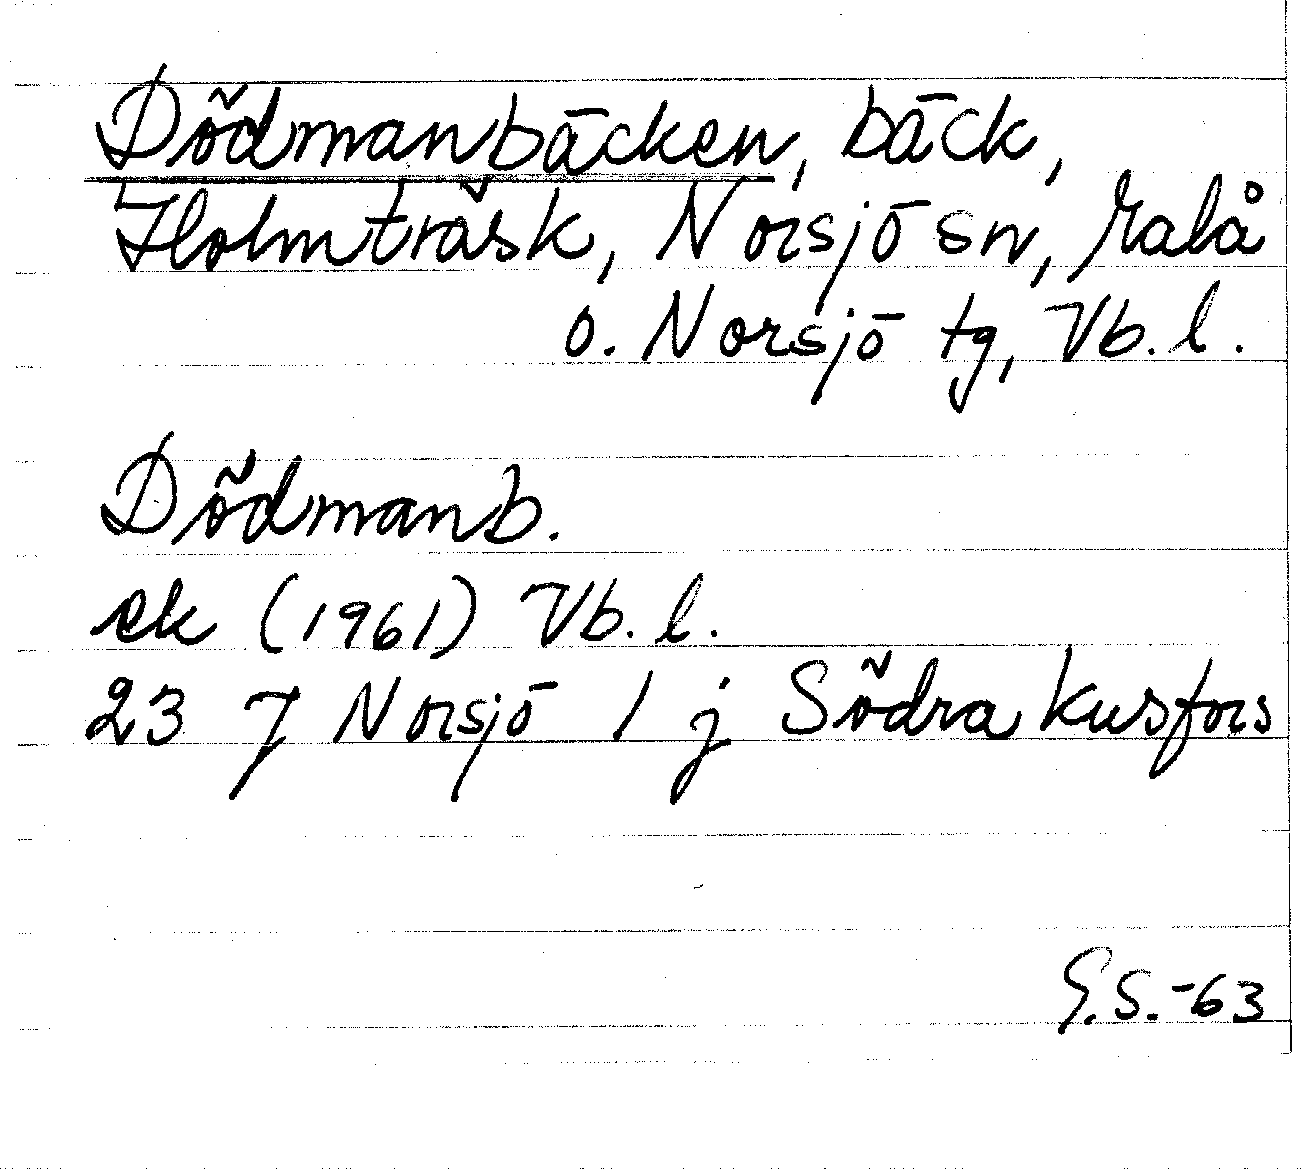 Dödmanbäcken, bäck,
Holmträsk, Norsjö sn, Malå
o. Norsjö tg, Vb. l.
Dödmanb.
ek (1961) Vb. l.
23 J Norsjö 1 j Södra Kusfors
G.S.-63